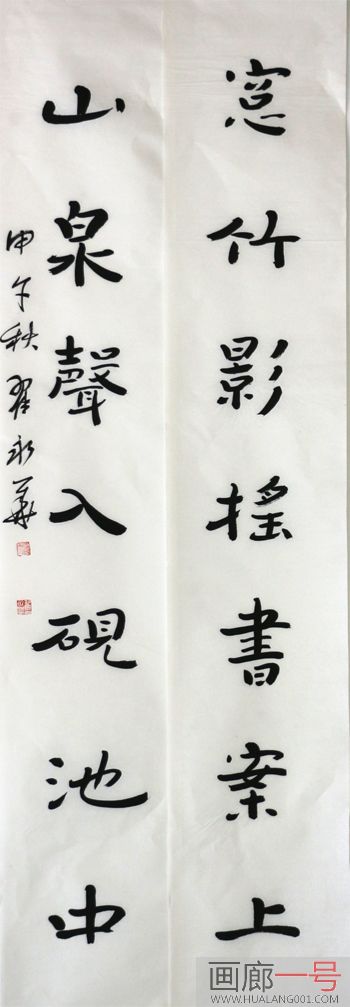 窓竹影搖書案上
山泉聲入硯池中
甲午秋翟永華
画廊一号
WWW.HUALANG001.COM